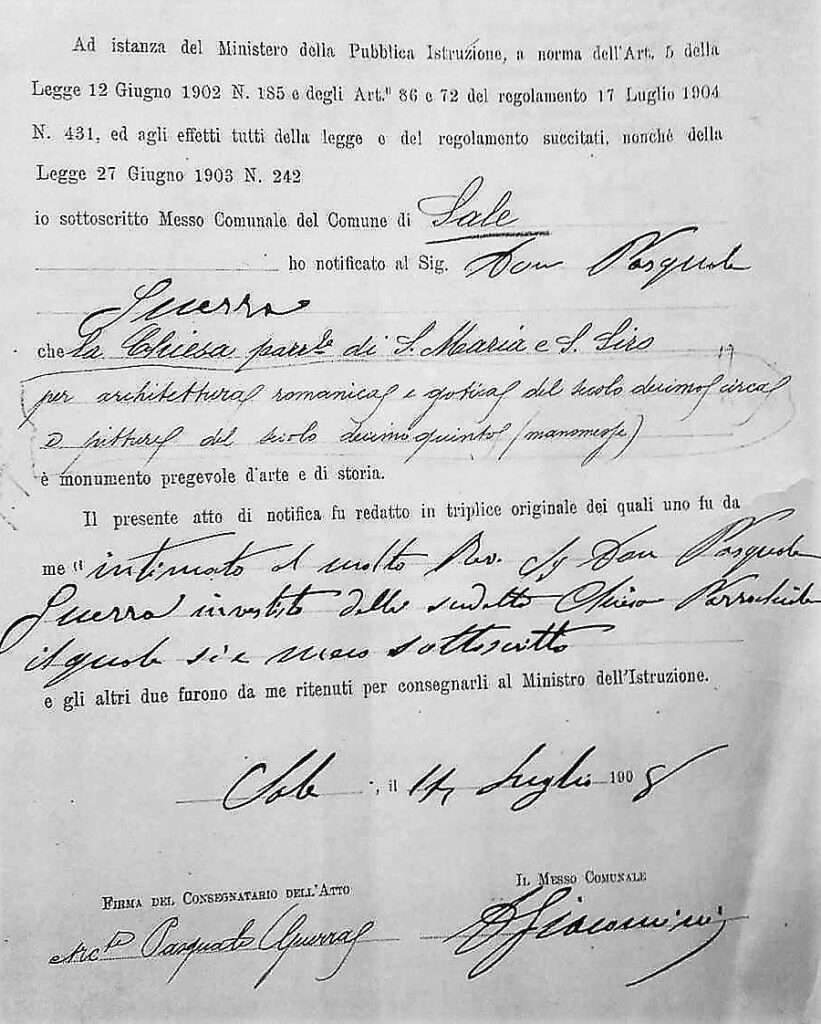 Ad istanza del Ministero della Pubblica Istruzione, a norma dell'Art. 5 della
Legge 12 Giugno 1902 N. 185 e degli Art.ⁱⁱ 86 e 72 del regolamento 17 Luglio 1904
N. 431, ed agli effetti tutti della legge e del regolamento succitati, nonchè della
Legge 27 Giugno 1903 N. 242
io sottoscritto Messo Comunale del Comune di Sale
ho notificato al Sig. Don Pasquale
Guerra
che la Chiesa parr.le di S. Maria e S. Siro
per architettura romanica e gotica del secolo decimo circa
e pitture del secolo decimoquinto (manomesse)
è monumento pregevole d'arte e di storia.
Il presente atto di notifica fu redatto in triplice originale dei quali uno fu da
me intimato al molto Rev. Sig Don Pasquale
Guerra investito della sudetta Chiesa Parrochiale
il quale si è meco sottoscritto
e gli altri due furono da me ritenuti per consegnarli al Ministro dell'Istruzione.
Sale, il 14, Luglio 1908
Firma del Consegnatario dell'Atto
Il Messo Comunale
Pasquale Guerra
Giacomini